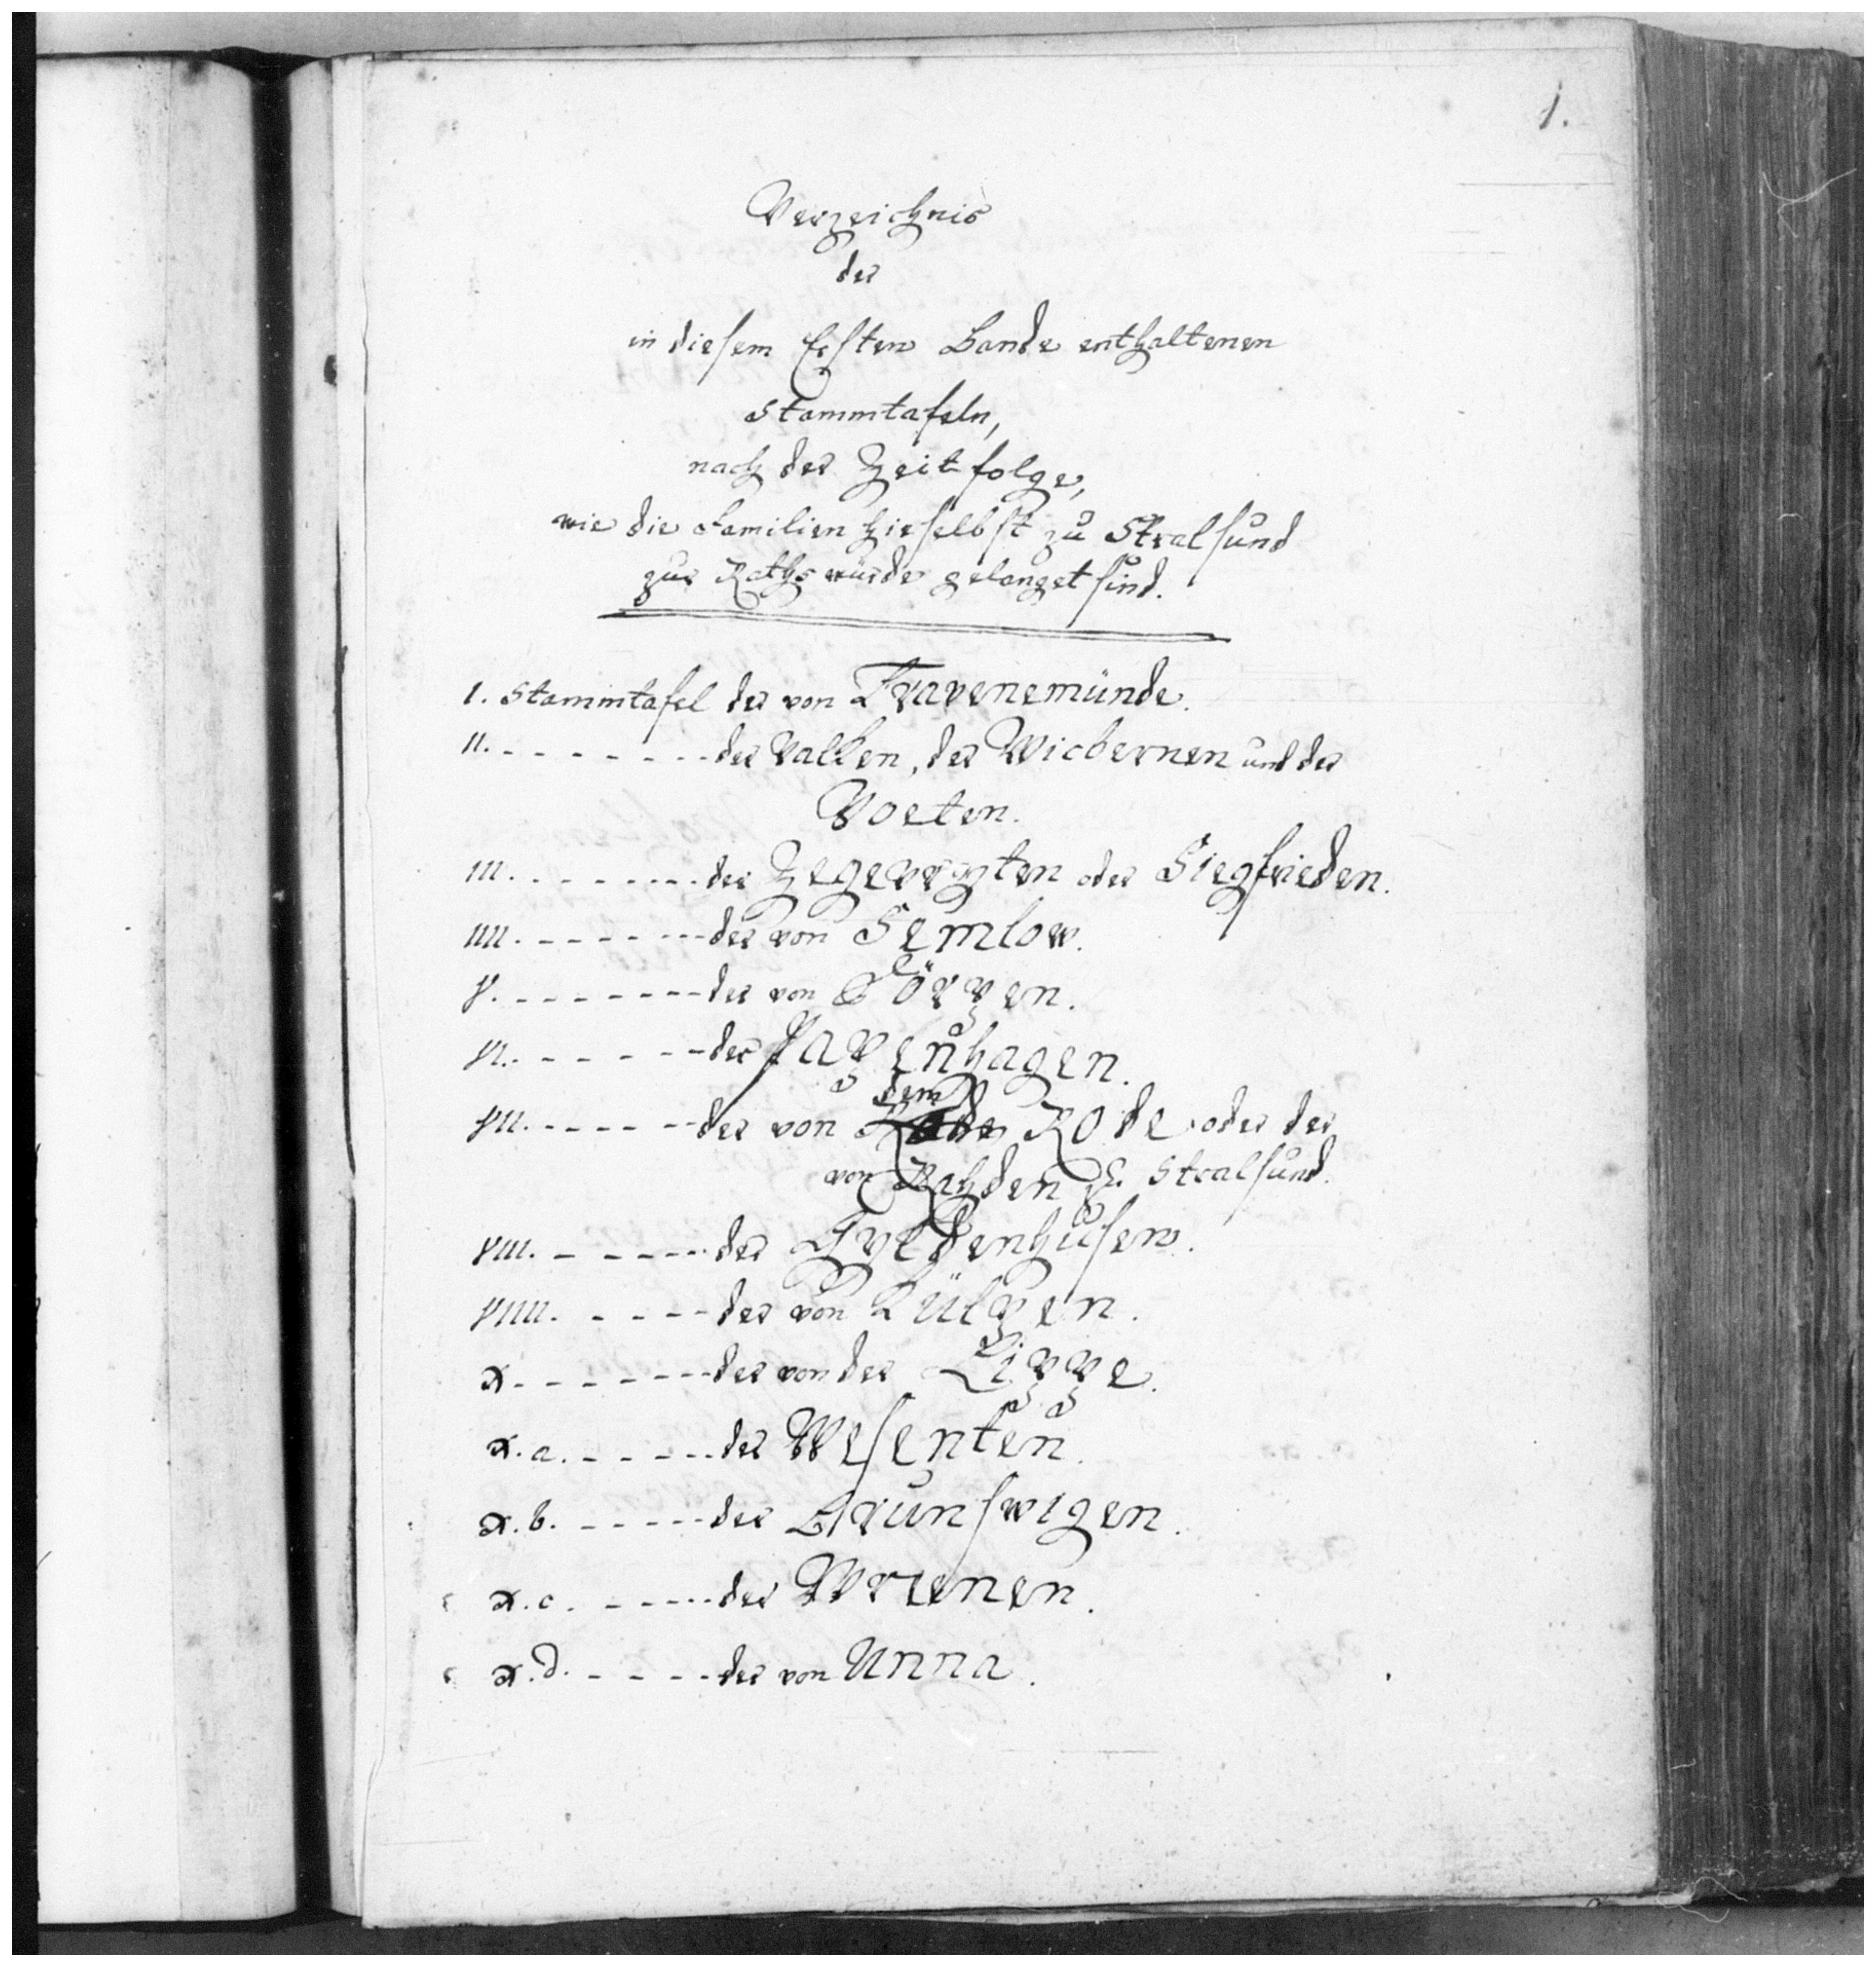 1.
Verzeichnis
der
in diesem Ersten Bande enthaltenen
Stammtafeln,
nach der Zeitfolge,
wie die Familien hieselbst zu Stralsund
zur Rathswürde gelanget sind.
I. Stammtafel der von Travenemünde.
II. - - - - - - - - der Valken, der Wicbernen und der
Voeten.
III. - - - - - - - - der Zegevryten oder Siegfrieden.
IIII. - - - - - - - - der von Semlow.
V. - - - - - - - - der von Dörpen.
VI. - - - - - - - der Papenhagen.
VII. - - - - - - der von dem Rode oder der
von Rahden zu Stralsund.
VIII. - - - - - - der Gyldenhusen.
VIIII. - - - - - der von Külpen.
X. - - - - - - - der von der Lippe.
X. a. - - - - - - der Wesenten.
X. b. - - - - - - der Brunswigen.
X. c. - - - - - - der Wrienen.
X. d. - - - - - der von Unna.